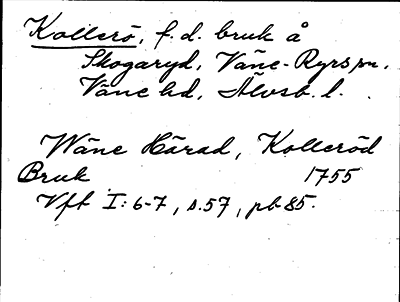 Kollerö, f.d. bruk å
Skogaryd, Väne-Ryrs sn.
Väne hd, Älvsb. l.
Wäne Härad, Kolleröd
Bruk 1755
Vft I:6-7, s.57, pl.85.